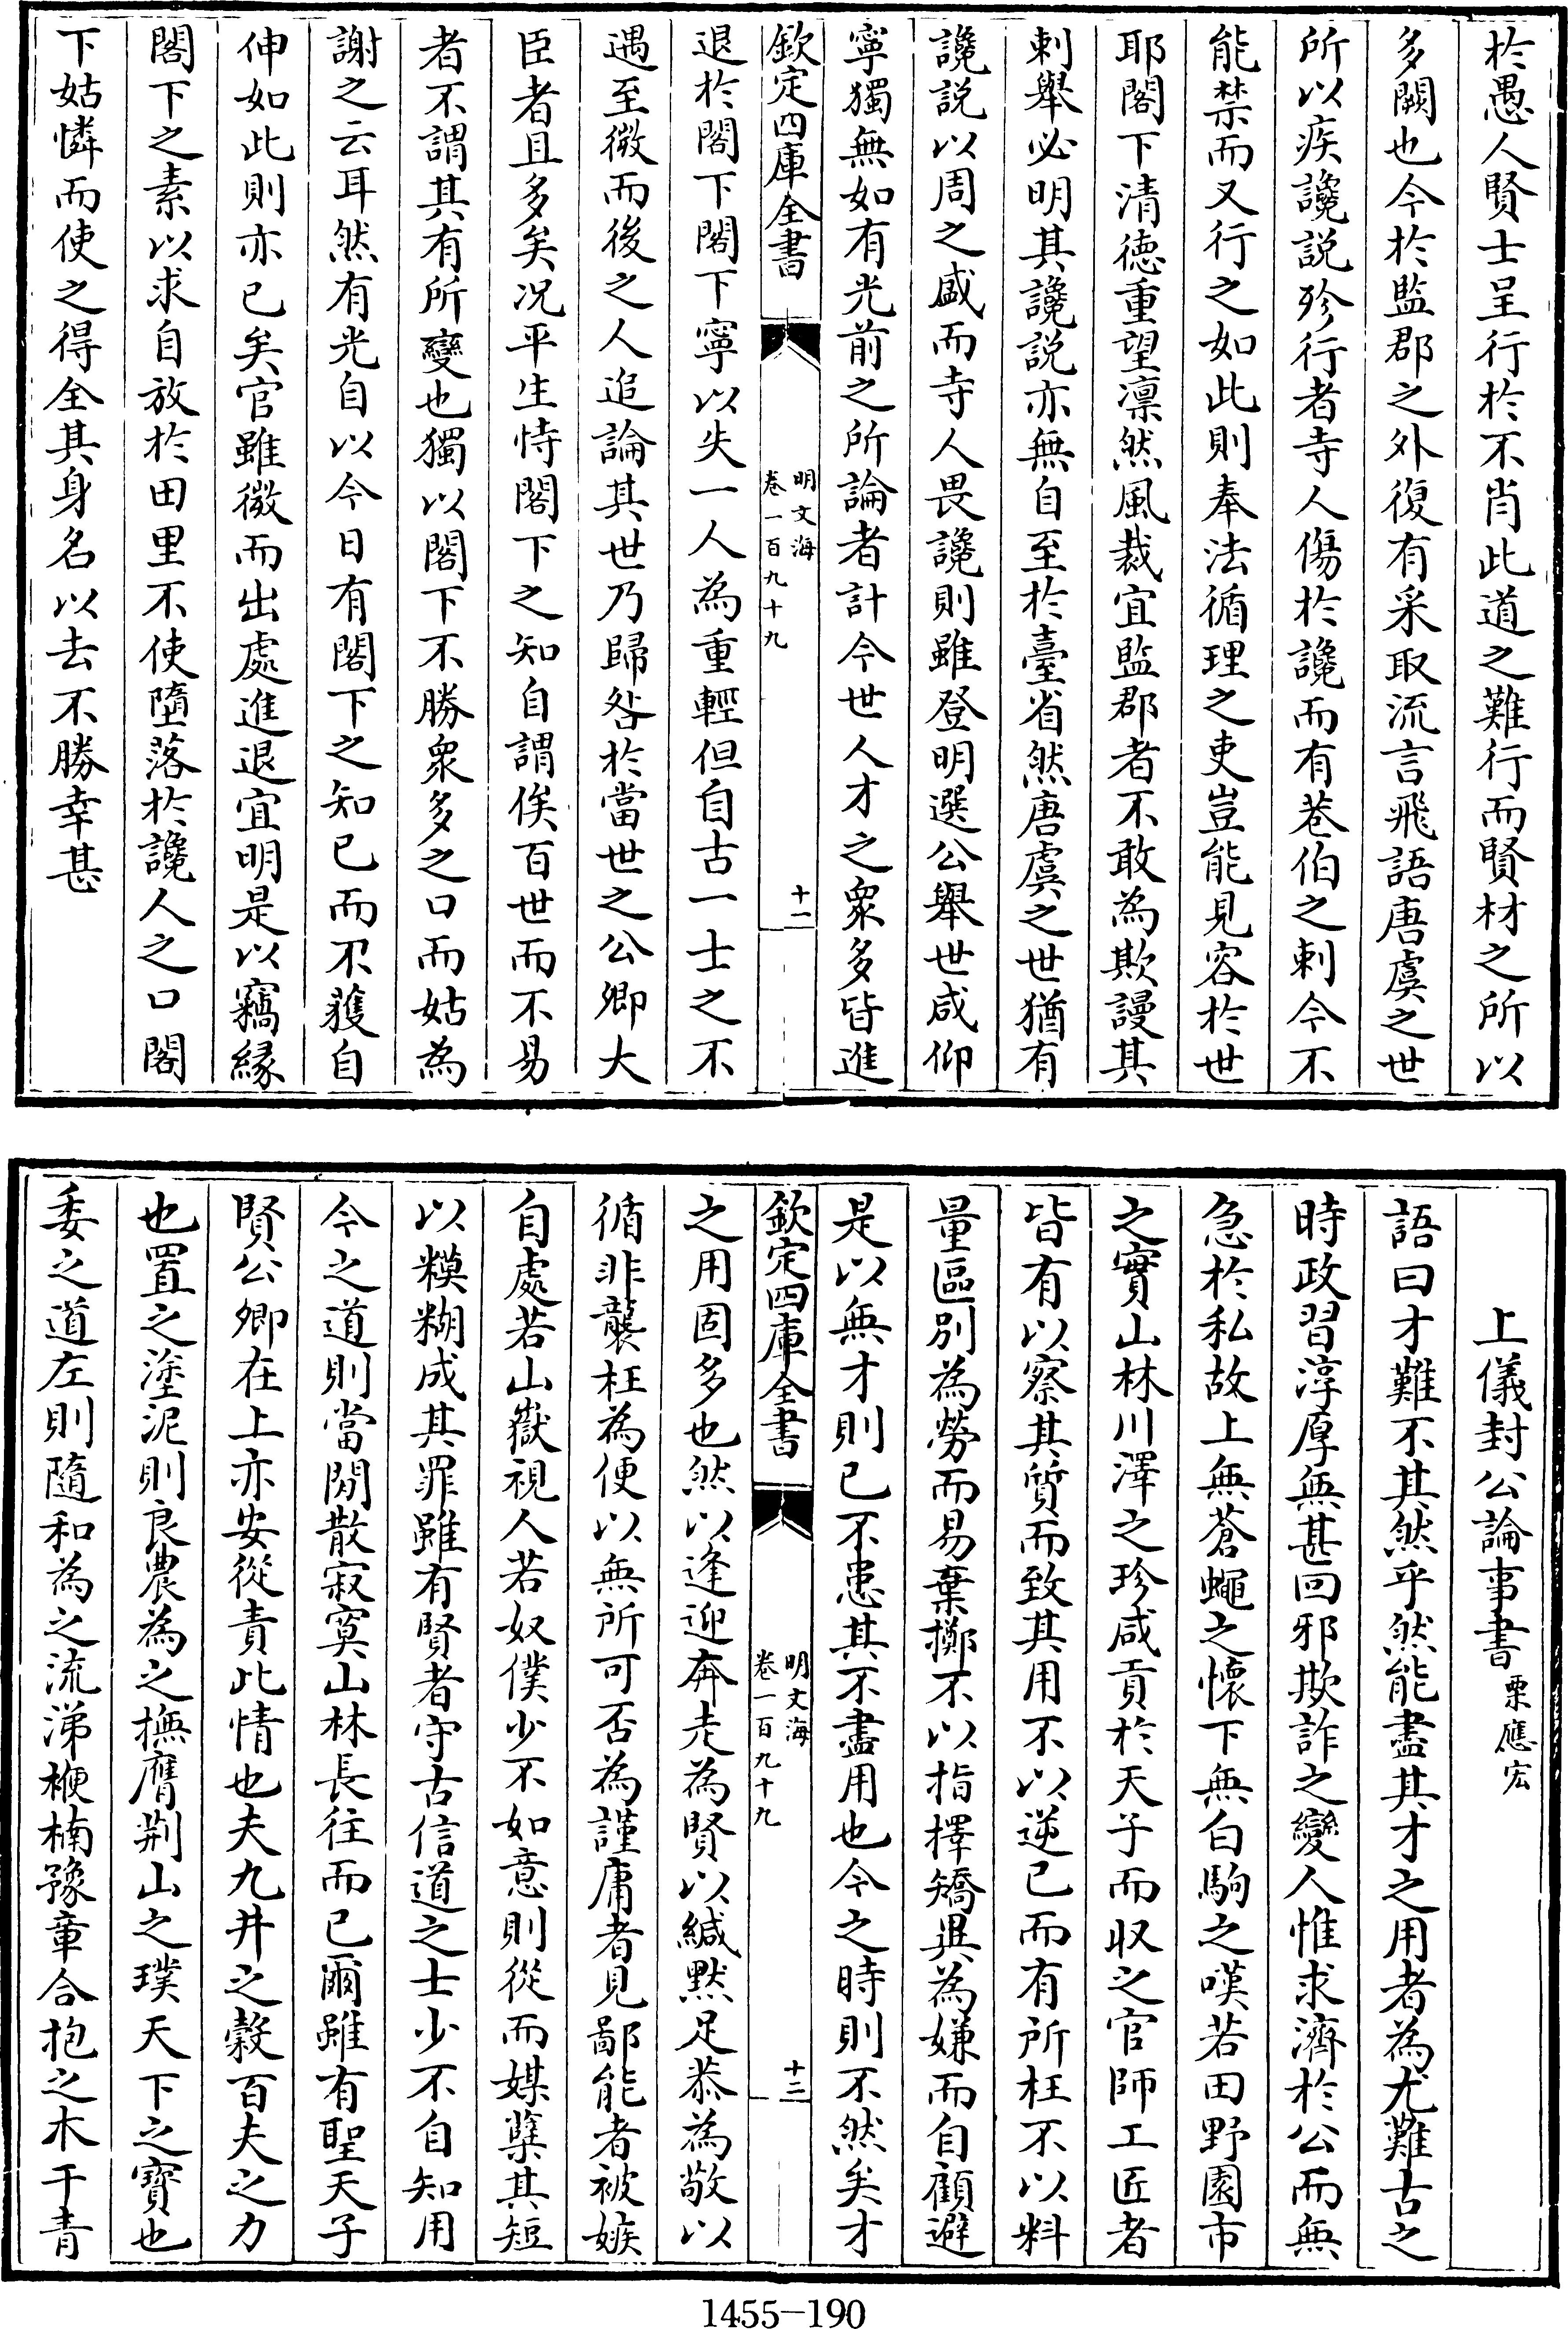 於愚人賢士呈行於不肖此道之難行而賢材之所以
多闕也今於監郡之外復有采取流言飛語唐虞之世
所以疾讒説殄行者寺人傷於讒而有巷伯之刺今不
能禁而又行之如此則奉法循理之吏豈能見容於世
耶閣下清德重望凛然風裁宜監郡者不敢為欺謾其
刺舉必明其讒説亦無自至於臺省然唐虞之世猶有
讒説以周之盛而寺人畏讒則雖登明選公舉世咸仰
寧獨無如有光前之所論者計今世人才之衆多皆進
欽定四庫全書
明文海
卷一百九十九
十一
退於閣下閣下寧以失一人為重輕但自古一士之不
遇至微而後之人追論其世乃歸咎於當世之公卿大
臣者且多矣况平生恃閣下之知自謂俟百世而不易
者不謂其有所變也獨以閣下不勝衆多之口而姑為
謝之云耳然有光自以今日有閣下之知已而不獲自
伸如此則亦已矣官雖微而出處進退宜明是以竊緣
閣下之素以求自放於田里不使墮落於讒人之口閣
下姑憐而使之得全其身名以去不勝幸甚
上儀封公論事書 栗應宏
語曰才難不其然乎然能盡其才之用者為尤難古之
時政習淳厚無甚回邪欺詐之變人惟求濟於公而無
急於私故上無蒼蠅之懷下無白駒之嘆若田野園市
之實山林川澤之珍咸貢於天子而収之官師工匠者
皆有以察其質而致其用不以逆已而有所枉不以料
量區别為勞而易棄擲不以指擇矯異為嫌而自顧避
是以無才則已不患其不盡用也今之時則不然矣才
欽定四庫全書
明文海
卷一百九十九
十三
之用固多也然以逢迎奔走為賢以緘默足恭為敬以
循非襲枉為便以無所可否為謹庸者見鄙能者被嫉
自處若山嶽視人若奴僕少不如意則從而媒蘖其短
以糢糊成其罪雖有賢者守古信道之士少不自知用
今之道則當閒散寂寞山林長往而已爾雖有聖天子
賢公卿在上亦安從責此情也夫九井之穀百夫之力
也置之塗泥則良農為之撫膺荆山之璞天下之寶也
委之道左則隨和為之流涕楩楠豫章合抱之木干青
1455-190